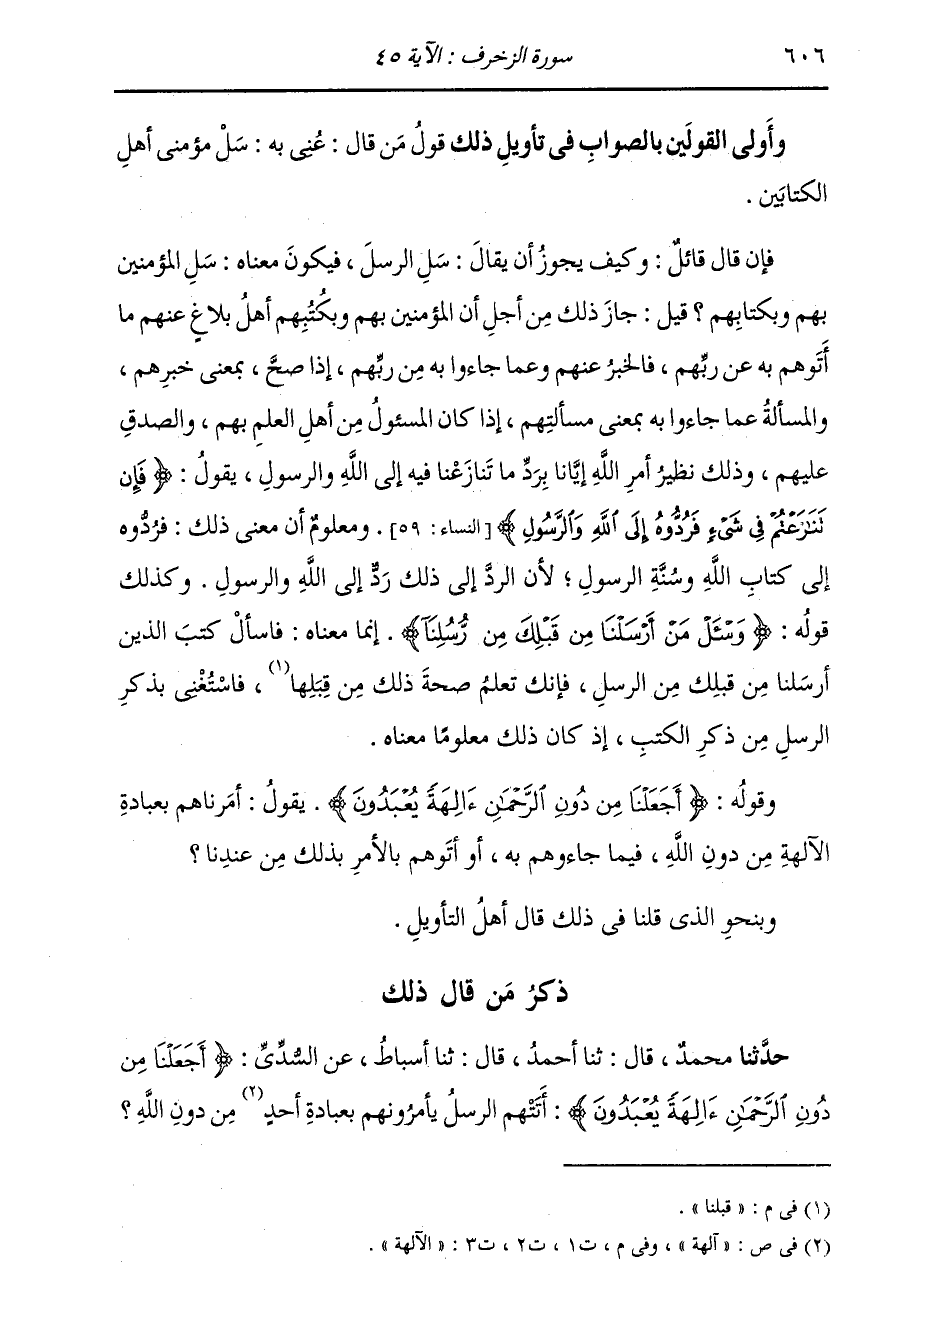 ٦٠٦
سورة الزخرف : الآية ٤٥
وأَولى القولَين بالصوابِ فى تأويلِ ذلك قولُ مَن قال : عُنِى به : سَلْ مؤمنى أهلِ
الكتابَين .
فإن قال قائلٌ : وكيف يجوزُ أن يقالَ : سَلِ الرسلَ ، فيكونَ معناه : سَلِ المؤمنين
بهم وبكتابِهم ؟ قيل : جازَ ذلك مِن أجلِ أن المؤمنين بهم وبكُتُبِهم أهلُ بلاغٍ عنهم ما
أَتَوهم به عن ربِّهم ، فالخبرُ عنهم وعما جاءوا به مِن ربِّهم ، إذا صحَّ ، بمعنى خبرِهم ،
والمسألةُ عما جاءوا به بمعنى مسألتِهم ، إذا كان المسئولُ مِن أهلِ العلمِ بهم ، والصدقِ
عليهم ، وذلك نظيرُ أمرِ اللَّهِ إيَّانا بِرَدِّ ما تَنازَعْنا فيه إلى اللَّهِ والرسولِ ، يقولُ : ﴿ فَإِن
تَنَٰزَعْتُمْ فِى شَىْءٍ فَرُدُّوهُ إِلَى ٱللَّهِ وَٱلرَّسُولِ ﴾ [النساء: ٥٩] . ومعلومٌ أن معنى ذلك : فرُدُّوه
إلى كتابِ اللَّهِ وسُنَّةِ الرسولِ ؛ لأن الردَّ إلى ذلك رَدٌّ إلى اللَّهِ والرسولِ . وكذلك
قولُه : ﴿ وَسْـَٔلْ مَنْ أَرْسَلْنَا مِن قَبْلِكَ مِن رُّسُلِنَآ﴾ . إنما معناه : فاسألْ كتبَ الذين
أرسَلنا مِن قبلِك مِن الرسلِ ، فإنك تعلمُ صحةَ ذلك مِن قِبَلِها(١) ، فاسْتُغْنِى بذكرِ
الرسلِ مِن ذكرِ الكتبِ ، إذ كان ذلك معلومًا معناه .
وقولُه : ﴿ أَجَعَلْنَا مِن دُونِ ٱلرَّحْمَٰنِ ءَالِهَةً يُعْبَدُونَ ﴾ . يقولُ : أمَرناهم بعبادةِ
الآلهةِ مِن دونِ اللَّهِ ، فيما جاءوهم به ، أو أتَوهم بالأمرِ بذلك مِن عندِنا ؟
وبنحوِ الذى قلنا فى ذلك قال أهلُ التأويلِ .
ذكرُ مَن قال ذلك
حدَّثنا محمدٌ ، قال : ثنا أحمدُ ، قال : ثنا أسباطُ ، عن السُّدِّىِّ : ﴿ أَجَعَلْنَا مِن
دُونِ ٱلرَّحْمَٰنِ ءَالِهَةً يُعْبَدُونَ ﴾ : أَتَتْهم الرسلُ يأمرُونهم بعبادةِ أحدٍ(٢) مِن دونِ اللَّهِ ؟
(١) فى م : « قبلنا » .
(٢) فى ص : « آلهة » ، وفى م ، ت١ ، ت٢ ، ت٣ : « الآلهة » .